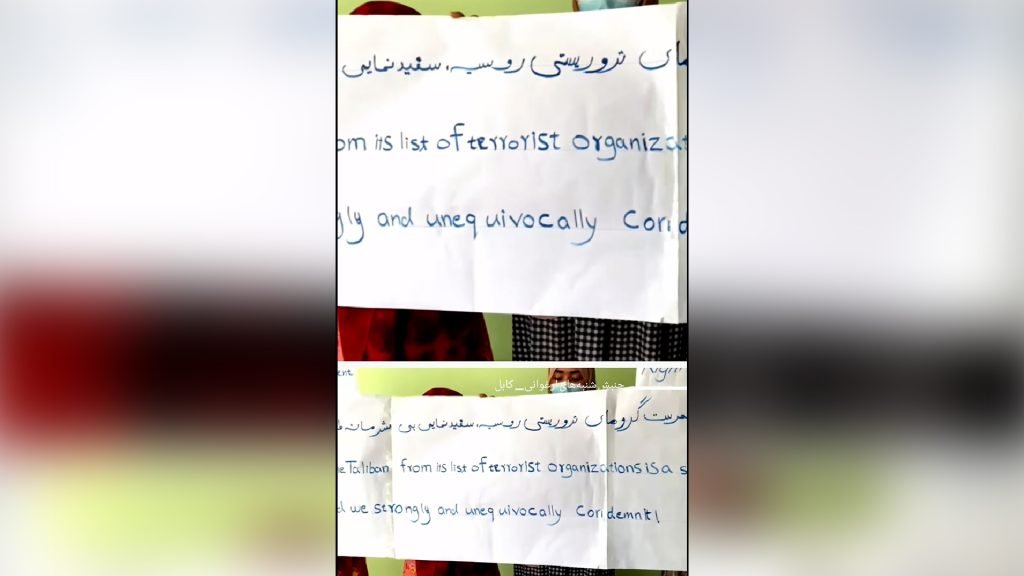 های تروریستی روسیه، سفیدنمایی
om its list of terrorist organizat
gly and unequivocally Cond
ent
Righ
جنبش شنبه‌های ارغوانی_کابل
هرست گروهای تروریستی روسیه، سفیدنمایی بی شرمانه
e Taliban from its list of terrorist organizations is a s
d we strongly and unequivocally Condemn it!